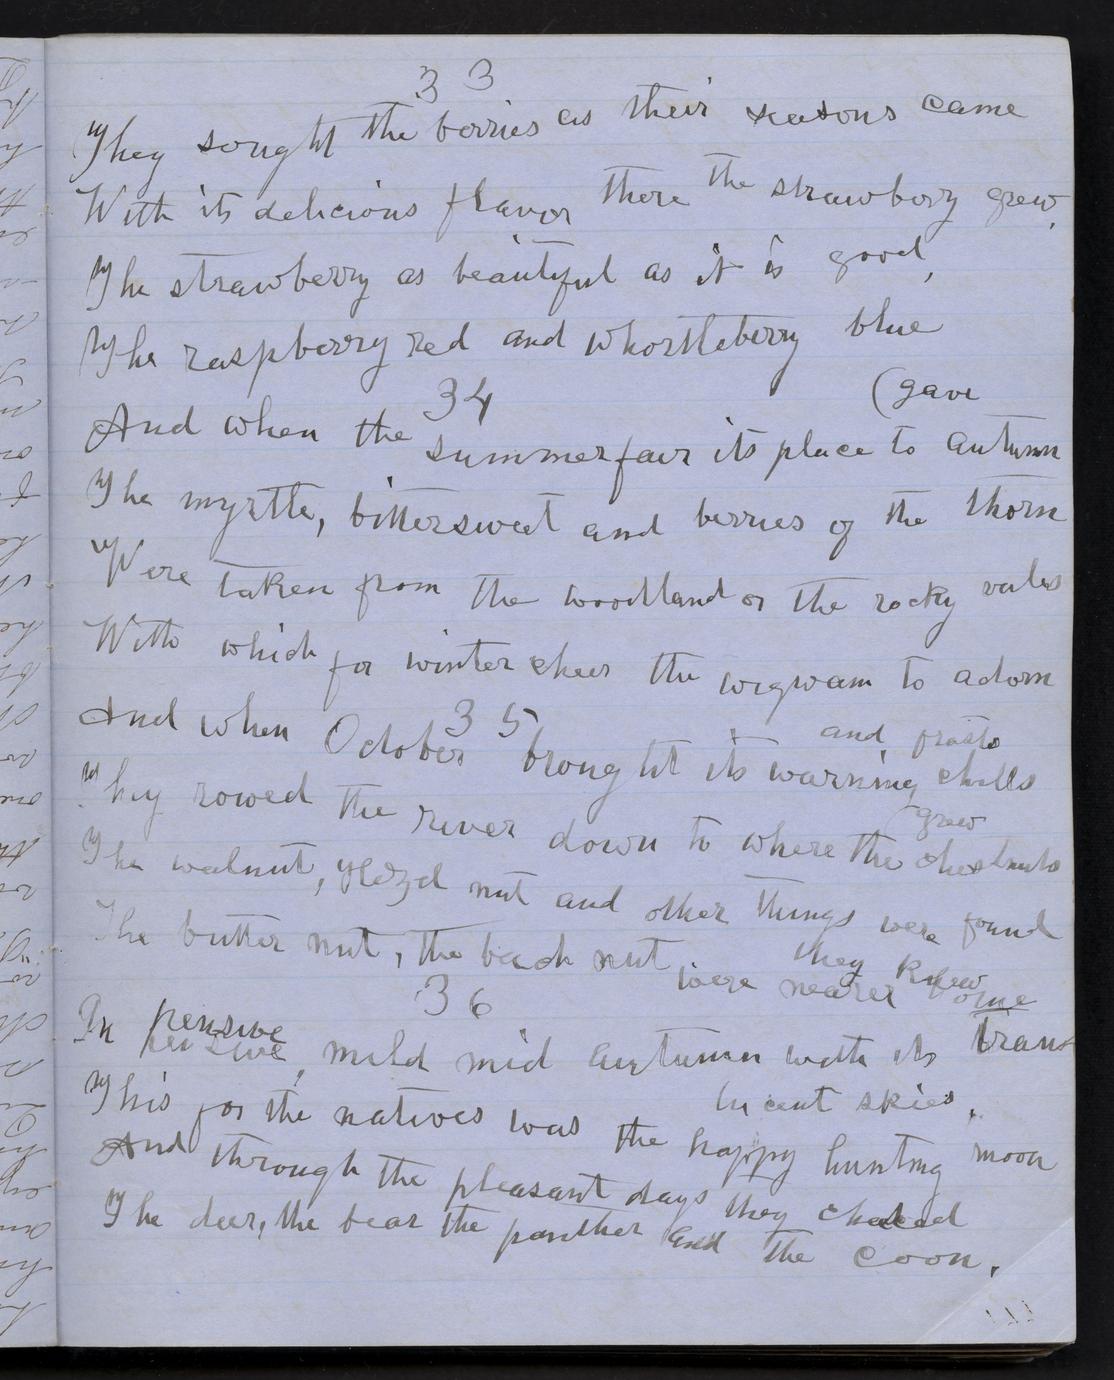 33
They sought the berries as their seasons came
With its delicious flavor there the strawbery grew,
The strawberry as beautiful as it is good,
The raspberry red and whortleberry blue
34
(gave
And when the summer fair its place to autumn
The myrtle, bittersweet and berries of the thorn
Were taken from the woodland or the rocky vales
With which for winter cheer the wigwam to adorn
35
and frosts
And when October brought its warning chills
They rowed the river down to where the chestnuts
(grew
The walnut, nut and other things were found
The butter nut, the beach nut were nearer home
they knew
36
In pensive pensive, mild mid autumn with its trans
lucent skies,
This for the natives was the happy hunting moon
And through the pleasant days they chased
The deer, the bear the panther and the coon.